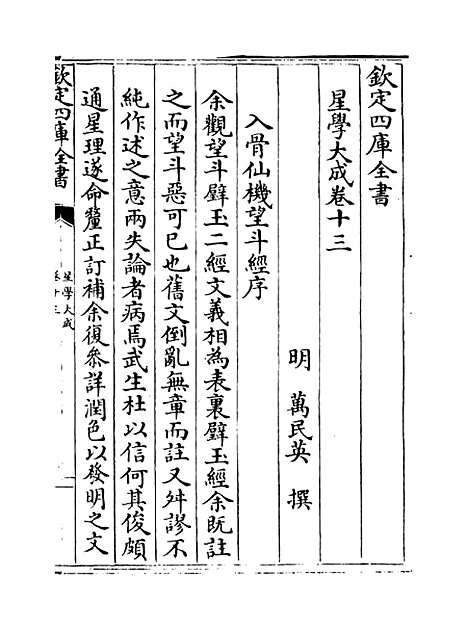 欽定四庫全書
星學大成卷十三
明 萬民英 撰
入骨仙機望斗經序
余觀望斗璧玉二經文義相為表裏璧玉經余既註
之而望斗惡可已也舊文倒亂無章而註又舛謬不
純作述之意兩失論者病焉武生杜以信何其俊頗
通星理遂命釐正訂補余復叅詳潤色以發明之文
欽定四庫全書
星學大成
卷十三